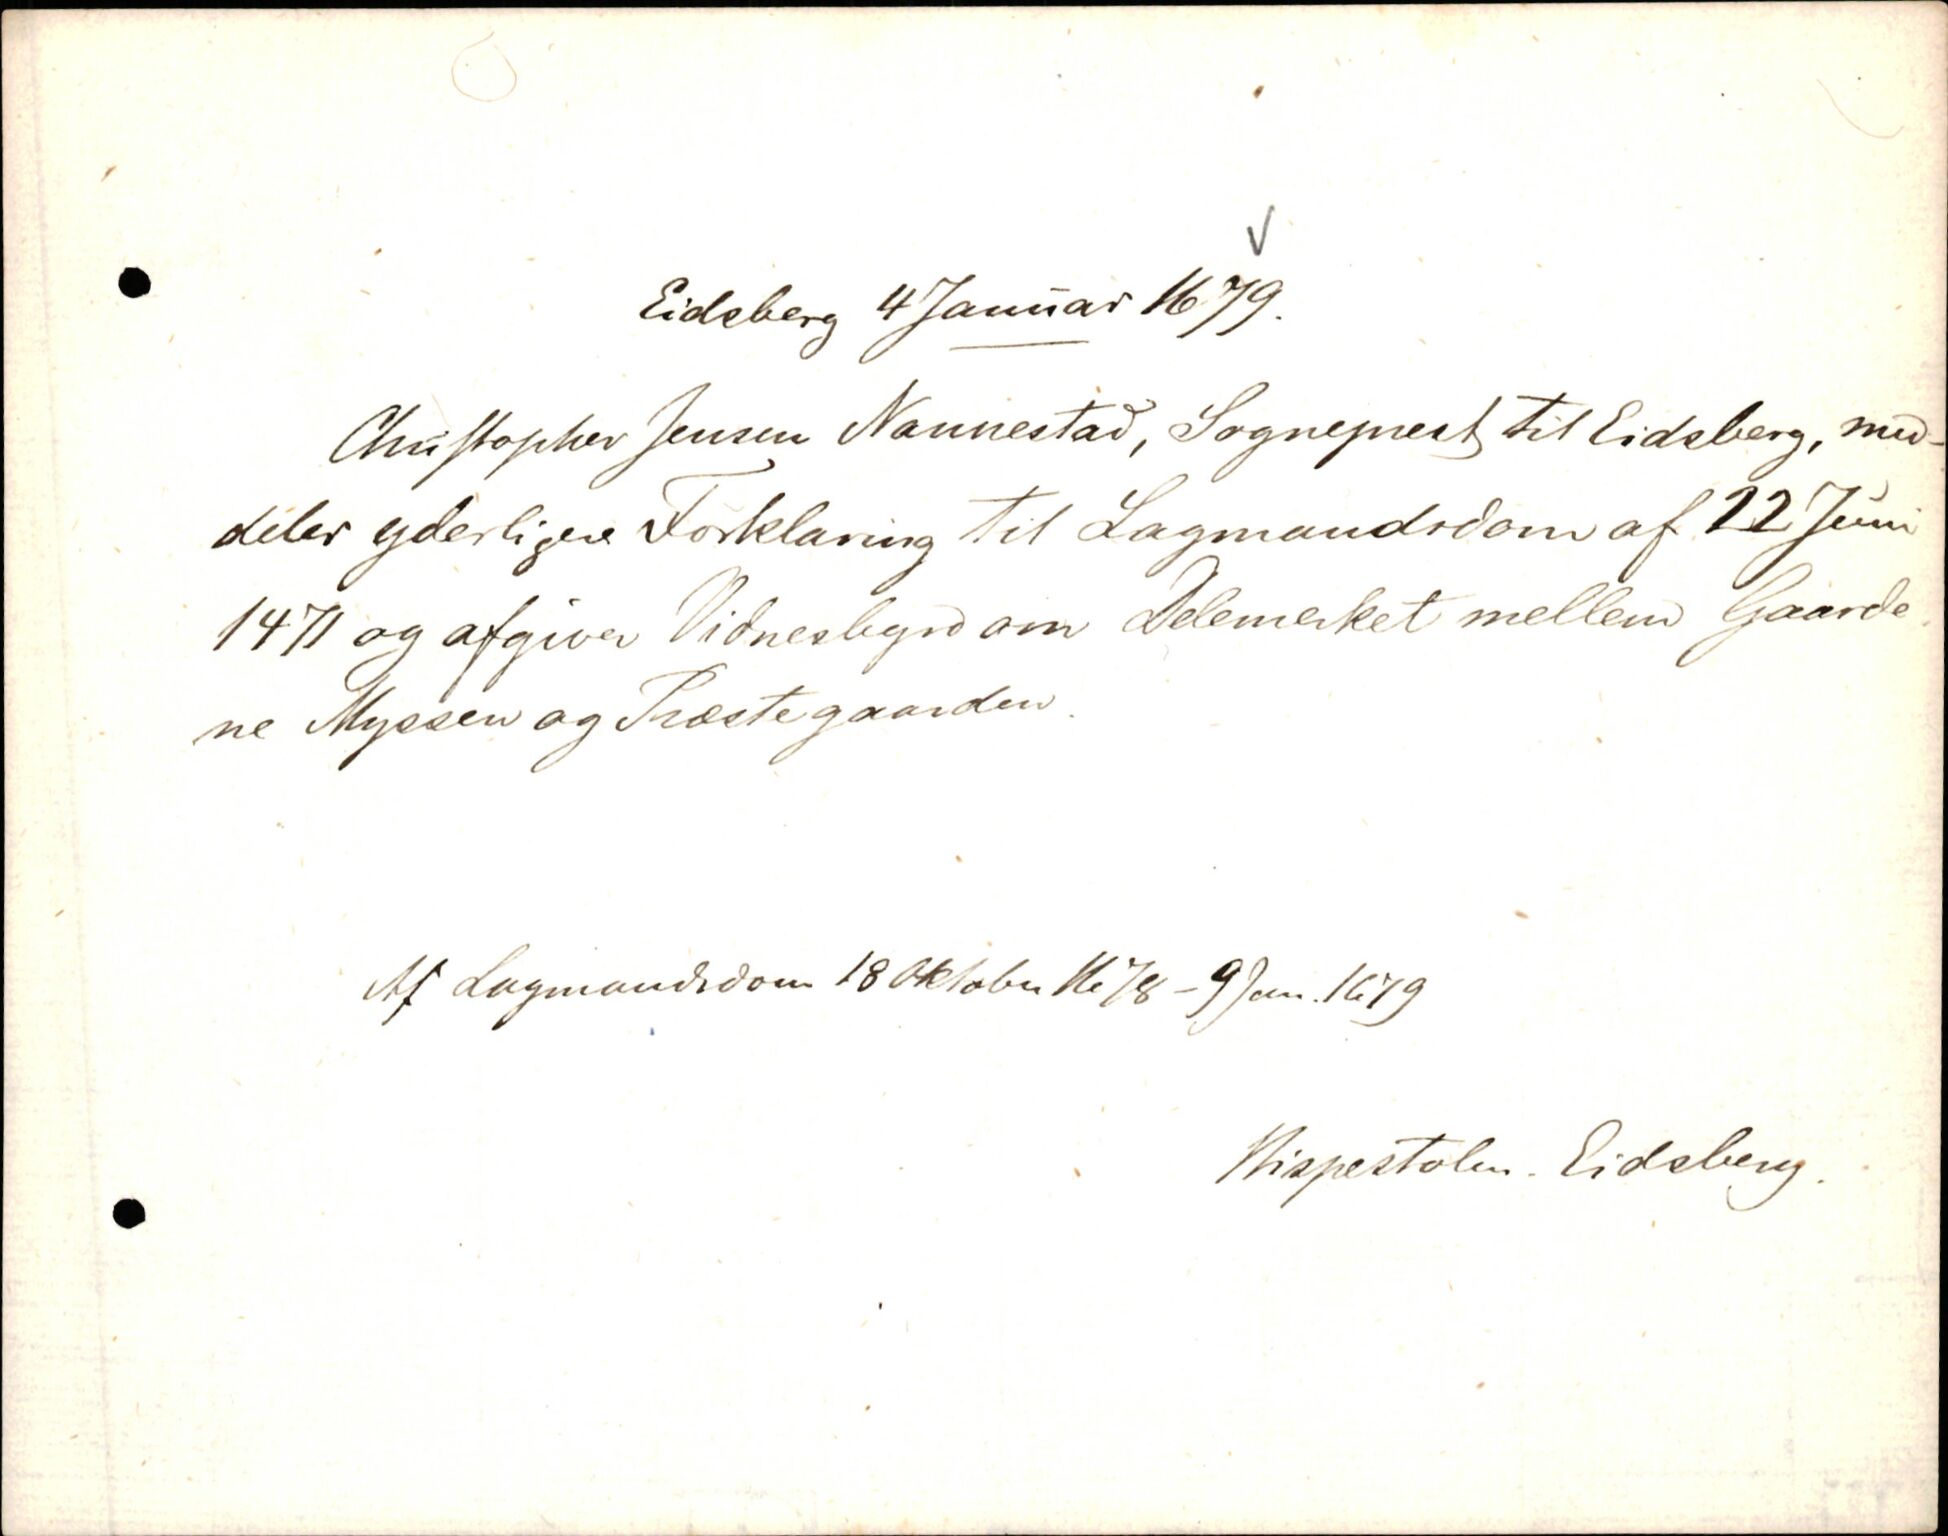 Eidsberg 4 Januar 1679.
Christopher Jensen Nannestad, Sogneprest til Eidsberg, med-
deler yderligere Forklaring til Lagmandsdom af 22 Juni
1471 og afgiver Vidnesbyrd om Delemerket mellem Gaarde
ne Myssen og Præstegaarden.
Af Lagmandsdom 18 Oktober 1678 - 9 Jan. 1679
Bispestolen. Eidsberg.